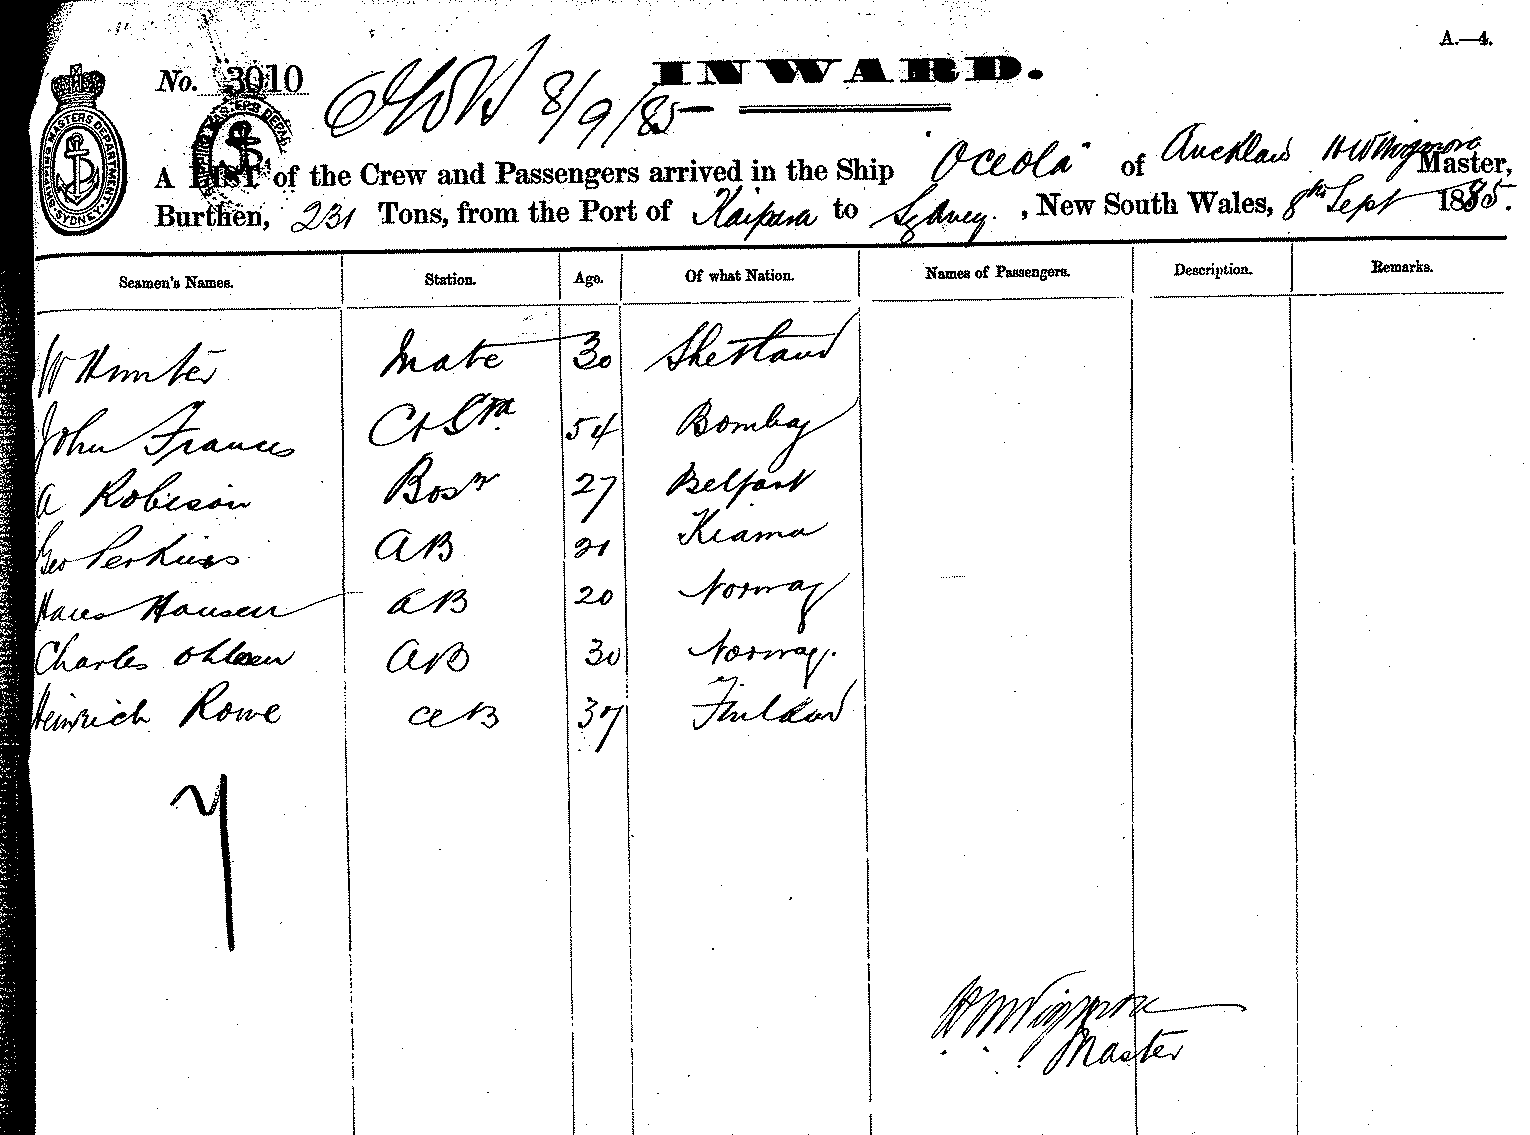 A.—4.
No. 3010 8/9/85 INWARD.
SHIPPING MASTERS DEPARTMENT SYDNEY
A List of the Crew and Passengers arrived in the Ship "Oceola" of Auckland Master,
Burthen, 231 Tons, from the Port of Kaipara to Sydney. , New South Wales, 8th Sept 1885.
Seamen's Names. Station. Age. Of what Nation. Names of Passengers. Description. Remarks.
W Hunter Mate 30 Shetland
John Frances 54 Bombay
A Robieson Bosn 27 Belfast
Geo Perkins AB 21 Kiama
Hans Hansen AB 20 Norway
Charles Ohlsen AB 30 Norway.
Heinrich Rowe AB 37 Finland
7
Master